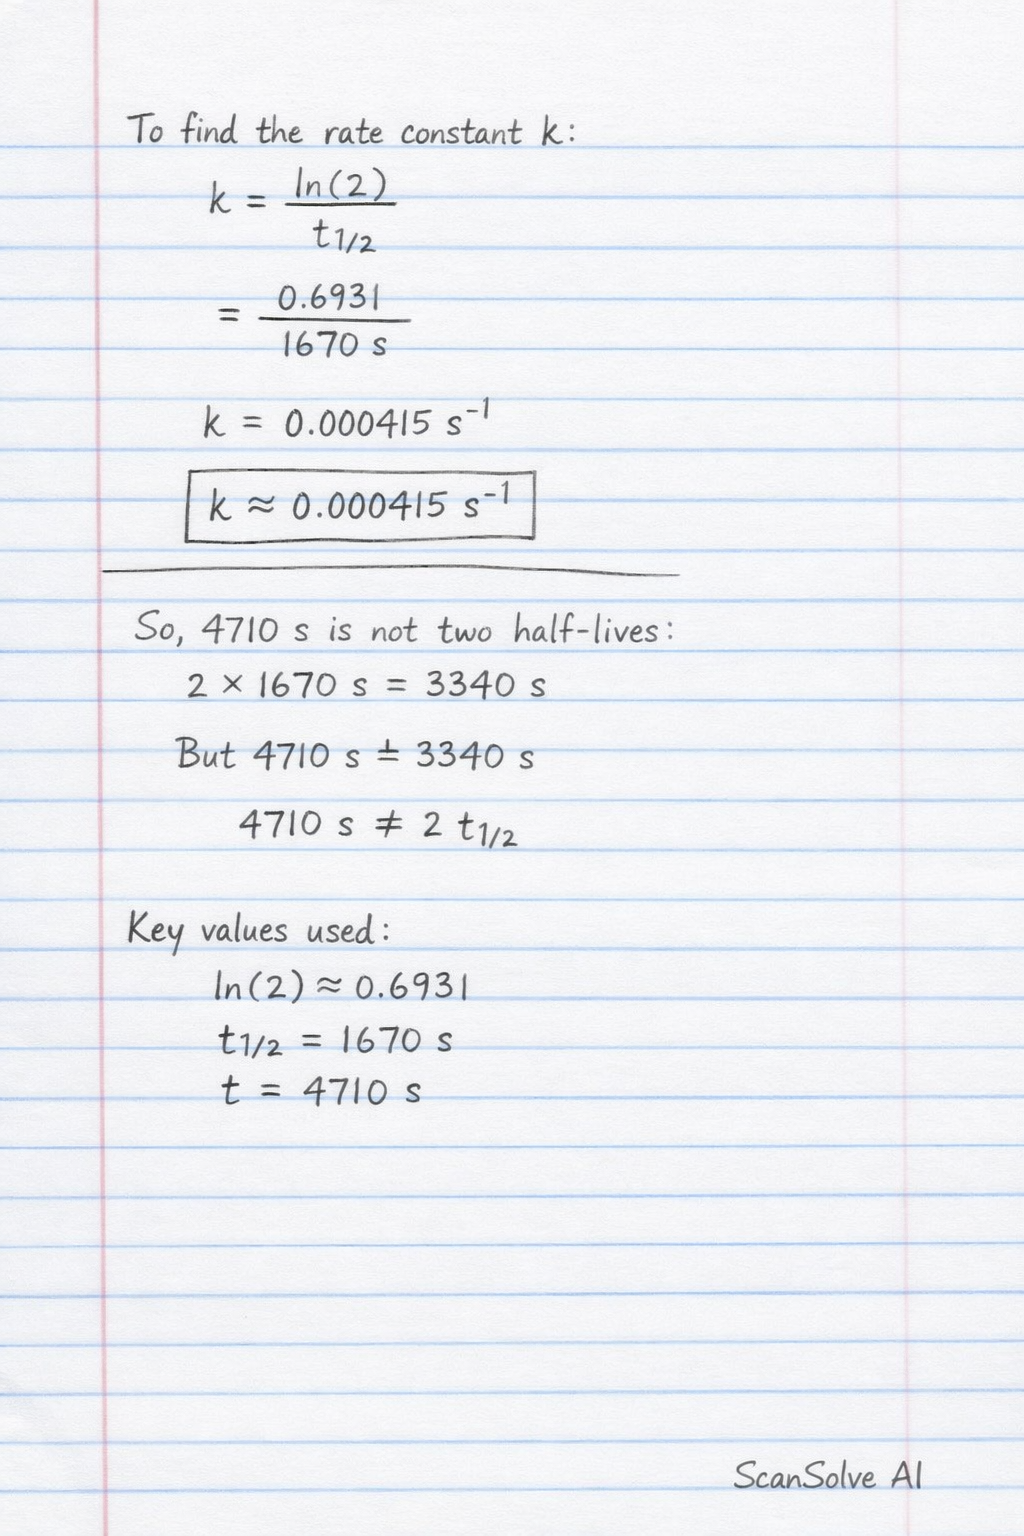 To find the rate constant k:
k = ln(2) / t1/2
= 0.6931 / 1670 s
k = 0.000415 s⁻¹
k ≈ 0.000415 s⁻¹
So, 4710 s is not two half-lives:
2 × 1670 s = 3340 s
But 4710 s ± 3340 s
4710 s ≠ 2 t1/2
Key values used:
ln(2) ≈ 0.6931
t1/2 = 1670 s
t = 4710 s
ScanSolve AI